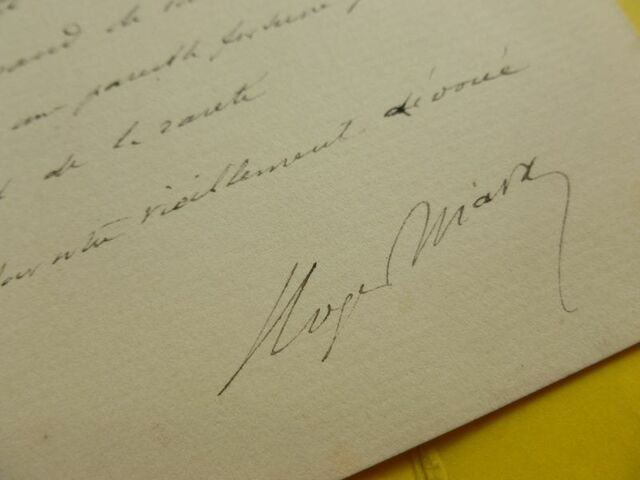 de
une pareille fortune
et de la santé
votre vieillement dévoué
Roger Marx